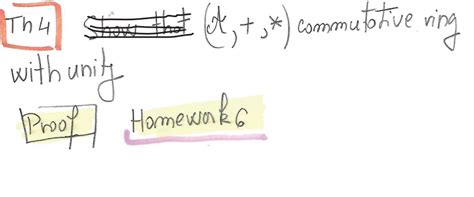 Th 4 (X, +, *) commutative ring
with unity
Proof Homework 6